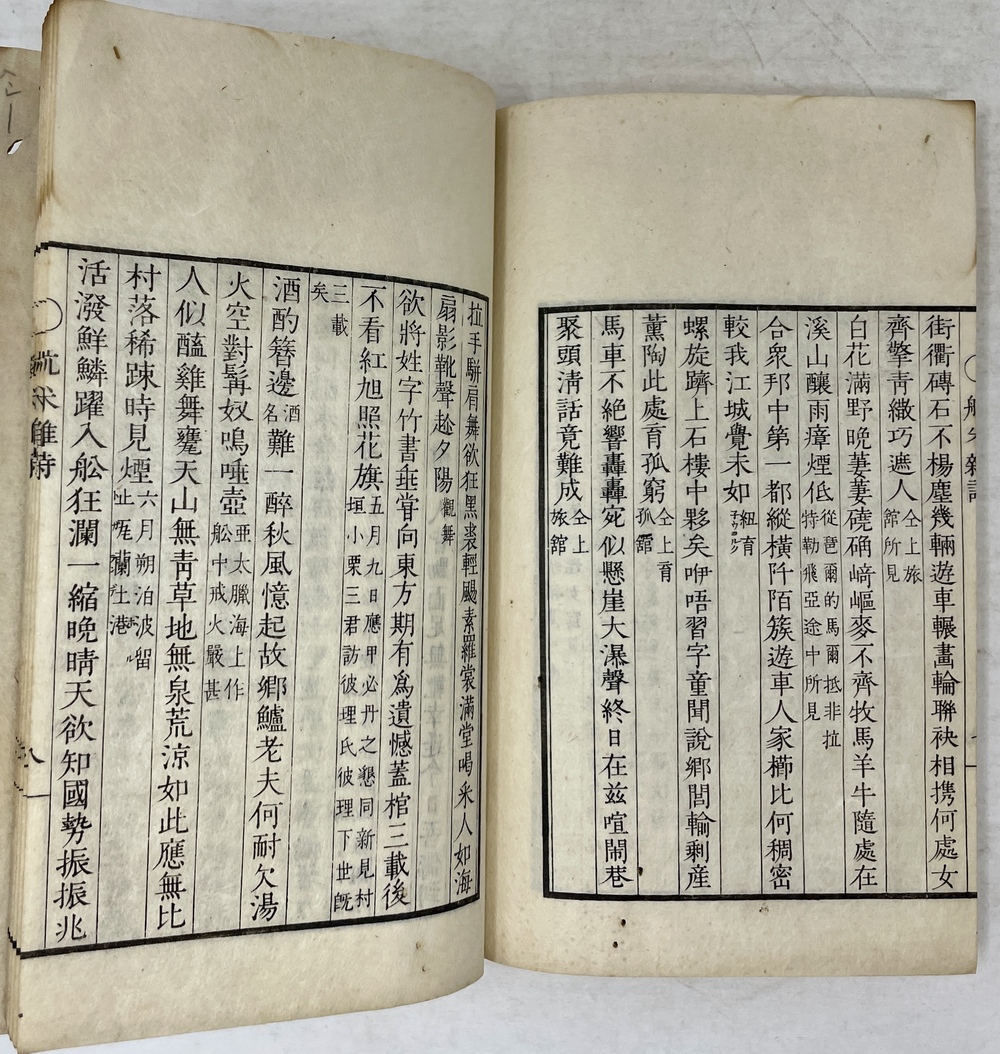 街衢磚石不楊塵幾輛遊車輾畫輪聯袂相携何處女
齊擎靑繖巧遮人仝上旅舘所見
白花滿野晩萋萋磽确﨑嶇麥不齊牧馬羊牛隨處在
溪山釀雨瘴煙低從琶爾的馬爾抵非拉特勒飛亞途中所見
合衆邦中第一都縱橫阡陌簇遊車人家櫛比何稠密
較我江城覺未如紐育
螺旋躋上石樓中夥矣咿唔習字童聞說鄕閭輸剩産
薰陶此處育孤窮仝上育孤舘
馬車不絕響轟轟宛似懸崖大瀑聲終日在玆喧閙巷
聚頭淸話竟難成仝上旅舘
拉手騈肩舞欲狂黑裘輕颺素羅裳滿堂喝釆人如海
扇影靴聲趁夕陽觀舞
欲將姓字竹書垂甞向東方期有爲遺憾蓋棺三載後
不看紅旭照花旗五月九日應甲必丹之懇同新見村垣小栗三君訪彼理氏彼理下世旣
三載矣
酒酌簪邊酒名難一醉秋風憶起故鄕鱸老夫何耐欠湯
火空對髯奴嗚唾壺亞太臘海上作舩中戒火嚴甚
人似醯雞舞甕天山無靑草地無泉荒凉如此應無比
村落稀踈時見煙六月朔泊波留止尾蘭土港
活潑鮮鱗躍入舩狂瀾一縮晩晴天欲知國勢振振兆
航米雜詩
八